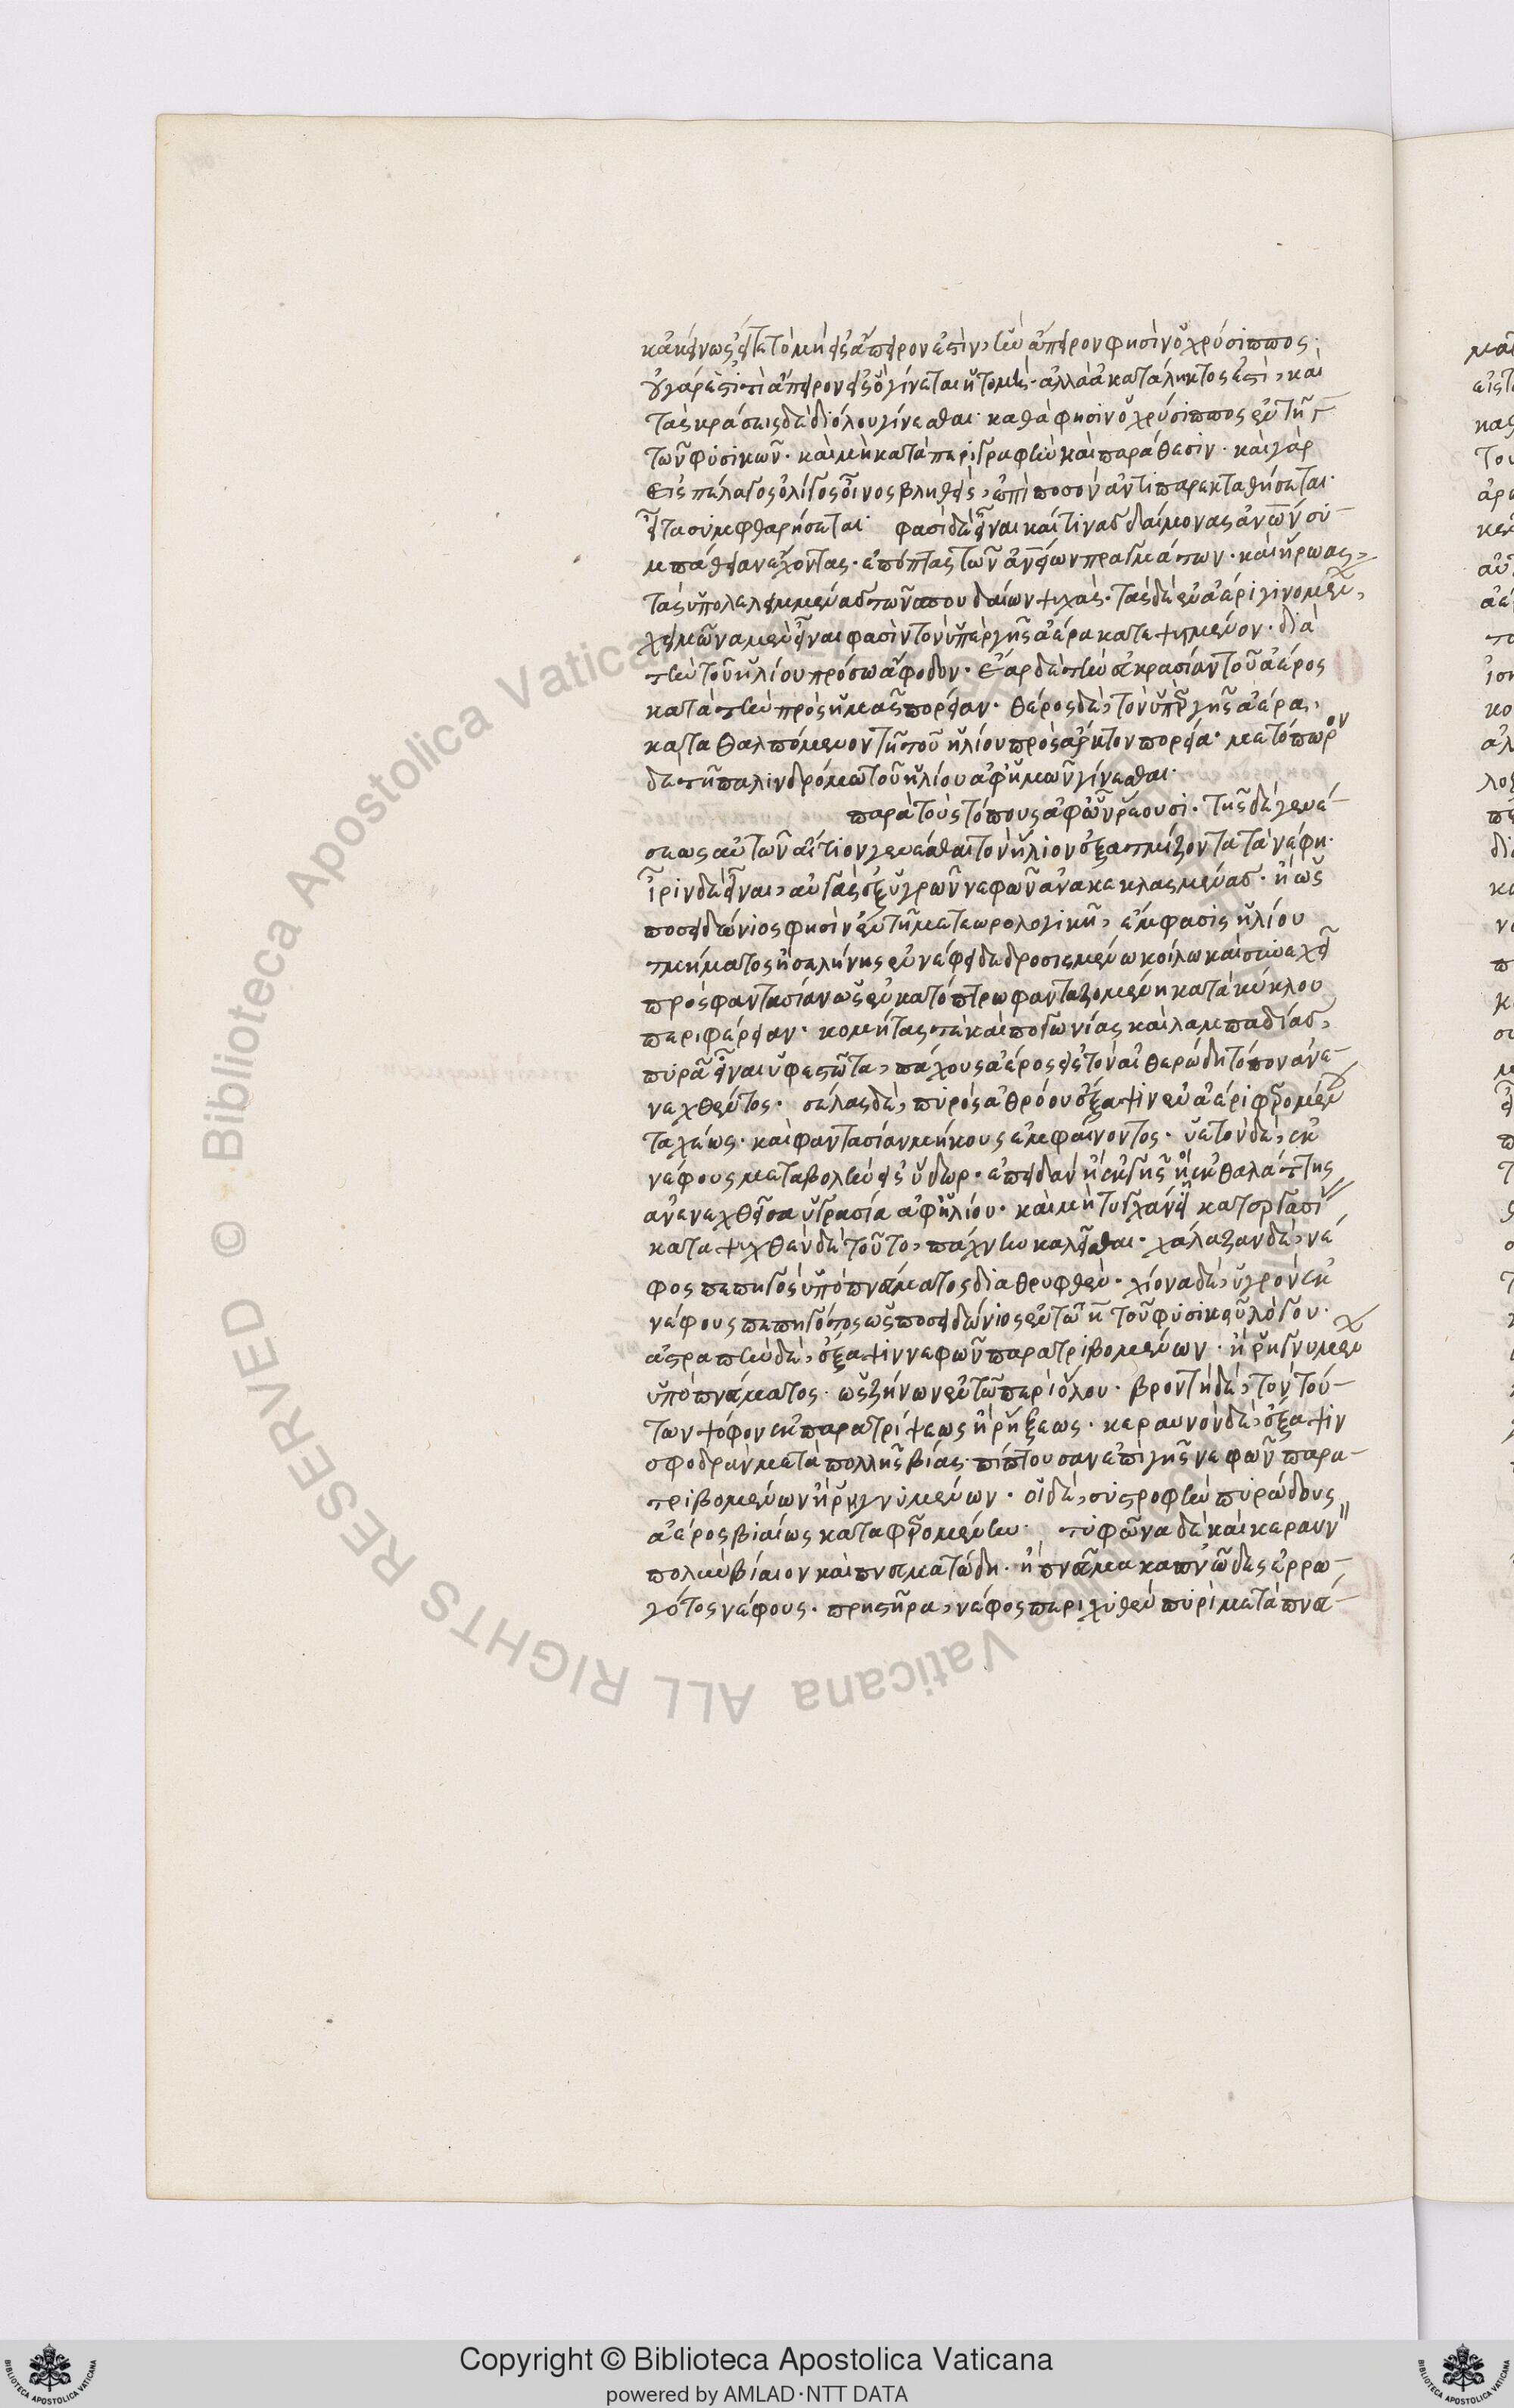 κἀκείνως· εἶτε τομὴ εἰς ἄπειρον ἐστὶν, ἣν ἄπειρον φησὶν ὁ χρύσιππος·
οὐ γάρ ἐστί τι ἄπειρον εἰς ὃ γίνεται ἡ τομή· ἀλλὰ ἀκατάληκτος ἐστὶ, καὶ
τὰς κράσεις δὲ διόλου γίνεσθαι· καθά φησιν ὁ χρύσιππος ἐν τῇ γ
τῶν φυσικῶν· καὶ μὴ κατὰ περιγραφὴν καὶ παράθεσιν· καὶ γὰρ
εἰς πέλαγος ὀλίγος οἶνος βληθεὶς, ἐπὶ ποσὸν ἀντιπαρεκταθήσεται·
εἶτα συμφθαρήσεται· φασὶ δὲ εἶναι καί τινας δαίμονας ἀνων συ-
μπάθειαν ἔχοντας· ἐπόπτας τῶν ἀνθείων πραγμάτων· καὶ ἥρωας,
τὰς ὑπολελειμμένας τῶν σπουδαίων ψυχάς· τὰς δὲ ἐν ἀέρι γινομέν,
χειμῶνα μὲν εἶναι φασὶν τὸν ὑπὲρ γῆς ἀέρα κατεψυγμένον· διὰ
τὴν τοῦ ἡλίου πρόσω ἄφοδον· ἔαρ δὲ τὴν εὐκρασίαν τοῦ ἀέρος
κατὰ τὴν πρὸς ἡμᾶς πορείαν· θέρος δὲ, τὸν ὑπὲρ γῆς ἀέρα,
καταθαλπόμενον τῇ τοῦ ἡλίου πρὸς ἄρκτον πορεία· μετόπωρον
δὲ τῇ παλινδρομία τοῦ ἡλίου ἀφ' ἡμῶν γίνεσθαι·
παρὰ τοὺς τόπους ἀφ' ὧν ῥέουσι· τῆς δὲ γενέ-
σεως αὐτῶν αἴτιον γενέσθαι τὸν ἥλιον ἐξατμίζοντα τὰ νέφη·
ἶριν δὲ εἶναι, αὐγὰς ἐξ ὑγρῶν νεφῶν ἀνακεκλασμένας· ἢ ὡς
ποσειδώνιος φησὶν ἐν τῇ μετεωρολογικῇ, ἔμφασις ἡλίου
τμήματος ἢ σελήνης ἐν νέφει δεδροσισμένω κοίλω καὶ συνεχεῖ
πρὸς φαντασίαν ὡς ἐν κατόπτρω φανταζομένη κατὰ κύκλου
περιφέρειαν· κομήτας τὲ καὶ πωγωνίας καὶ λαμπαδίας,
πυρὰ εἶναι ὑφεστῶτα, πάχους ἀέρος εἰς τὸν αἰθερώδη τόπον ἀνε-
νεχθέντος· σέλας δὲ, πυρὸς ἀθρόου ἔξαψιν ἐν ἀέρι φερομέν
ταχέως· καὶ φαντασίαν μήκους ἐμφαίνοντος· ὑετὸν δὲ, ἐκ
νέφους μεταβολὴν εἰς ὕδωρ· ἐπειδὰν ἢ ἐκ γῆς ἢ ἐκ θαλάττης
ἀνενεχθεῖσα ὑγρασία ἀφ' ἡλίου· καὶ μὴ τυγχάνει κατεργασί
καταψυχθὲν δὲ τοῦτο, πάχνην καλεῖσθαι· χάλαζαν δὲ, νέ
φος πεπηγὸς ὑπὸ πνεύματος διαθρυφθέν· χίονα δὲ, ὑγρὸν ἐκ
νέφους πεπηγότος ὡς ποσειδώνιος ἐν τῶ η τοῦ φυσικοῦ λόγου·
ἀστραπὴν δὲ, ἔξαψιν νεφῶν παρατριβομένων· ἢ ῥηγνυμέν
ὑπὸ πνεύματος· ὡς ζήνων ἐν τῶ περὶ ὅλου· βροντὴ δὲ, τὸν τού-
των ψόφον ἐκ παρατρίψεως ἢ ῥήξεως· κεραυνὸν δὲ, ἔξαψιν
σφοδρὰν μετὰ πολλῆς βίας πίπτουσαν ἐπὶ γῆς νεφῶν παρα-
τριβομένων ἢ ῥηγνυμένων· οἱ δὲ, συστροφὴν πυρώδους
ἀέρος βιαίως καταφερομένην· τυφῶνα δὲ καὶ κεραυν
πολὺν βίαιον καὶ πνευματώδη· ἢ πνεῦμα καπνῶδες ἐρρω-
γότος νέφους· πρηστῆρα, νέφος περισχισθὲν πυρὶ μετὰ πνεύ-
Copyright © Biblioteca Apostolica Vaticana
powered by AMLAD·NTT DATA